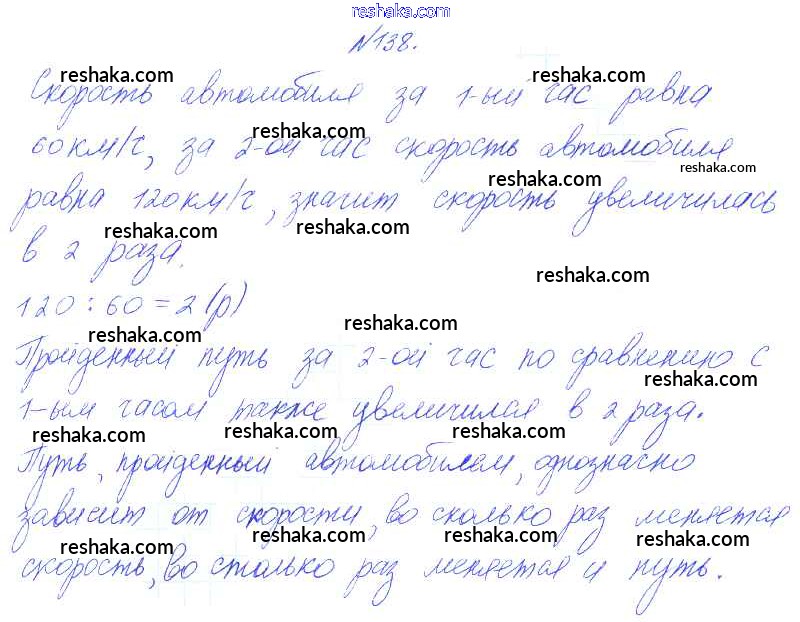 reshaka.com
N138.
reshaka.com reshaka.com
Скорость автомобиля за 1-ый час равна
reshaka.com
60 км/ч, за 2-ой час скорость автомобиля
reshaka.com reshaka.com
равна 120 км/ч, значит скорость увеличилась
reshaka.com reshaka.com
в 2 раза.
reshaka.com
120 : 60 = 2 (р)
reshaka.com reshaka.com
Пройденный путь за 2-ой час по сравнению с
reshaka.com
1-ым часом также увеличился в 2 раза.
reshaka.com reshaka.com reshaka.com
Путь, пройденный автомобилем, однозначно
зависит от скорости, во сколько раз меняется
reshaka.com reshaka.com reshaka.com
скорость, во столько раз меняется и путь.